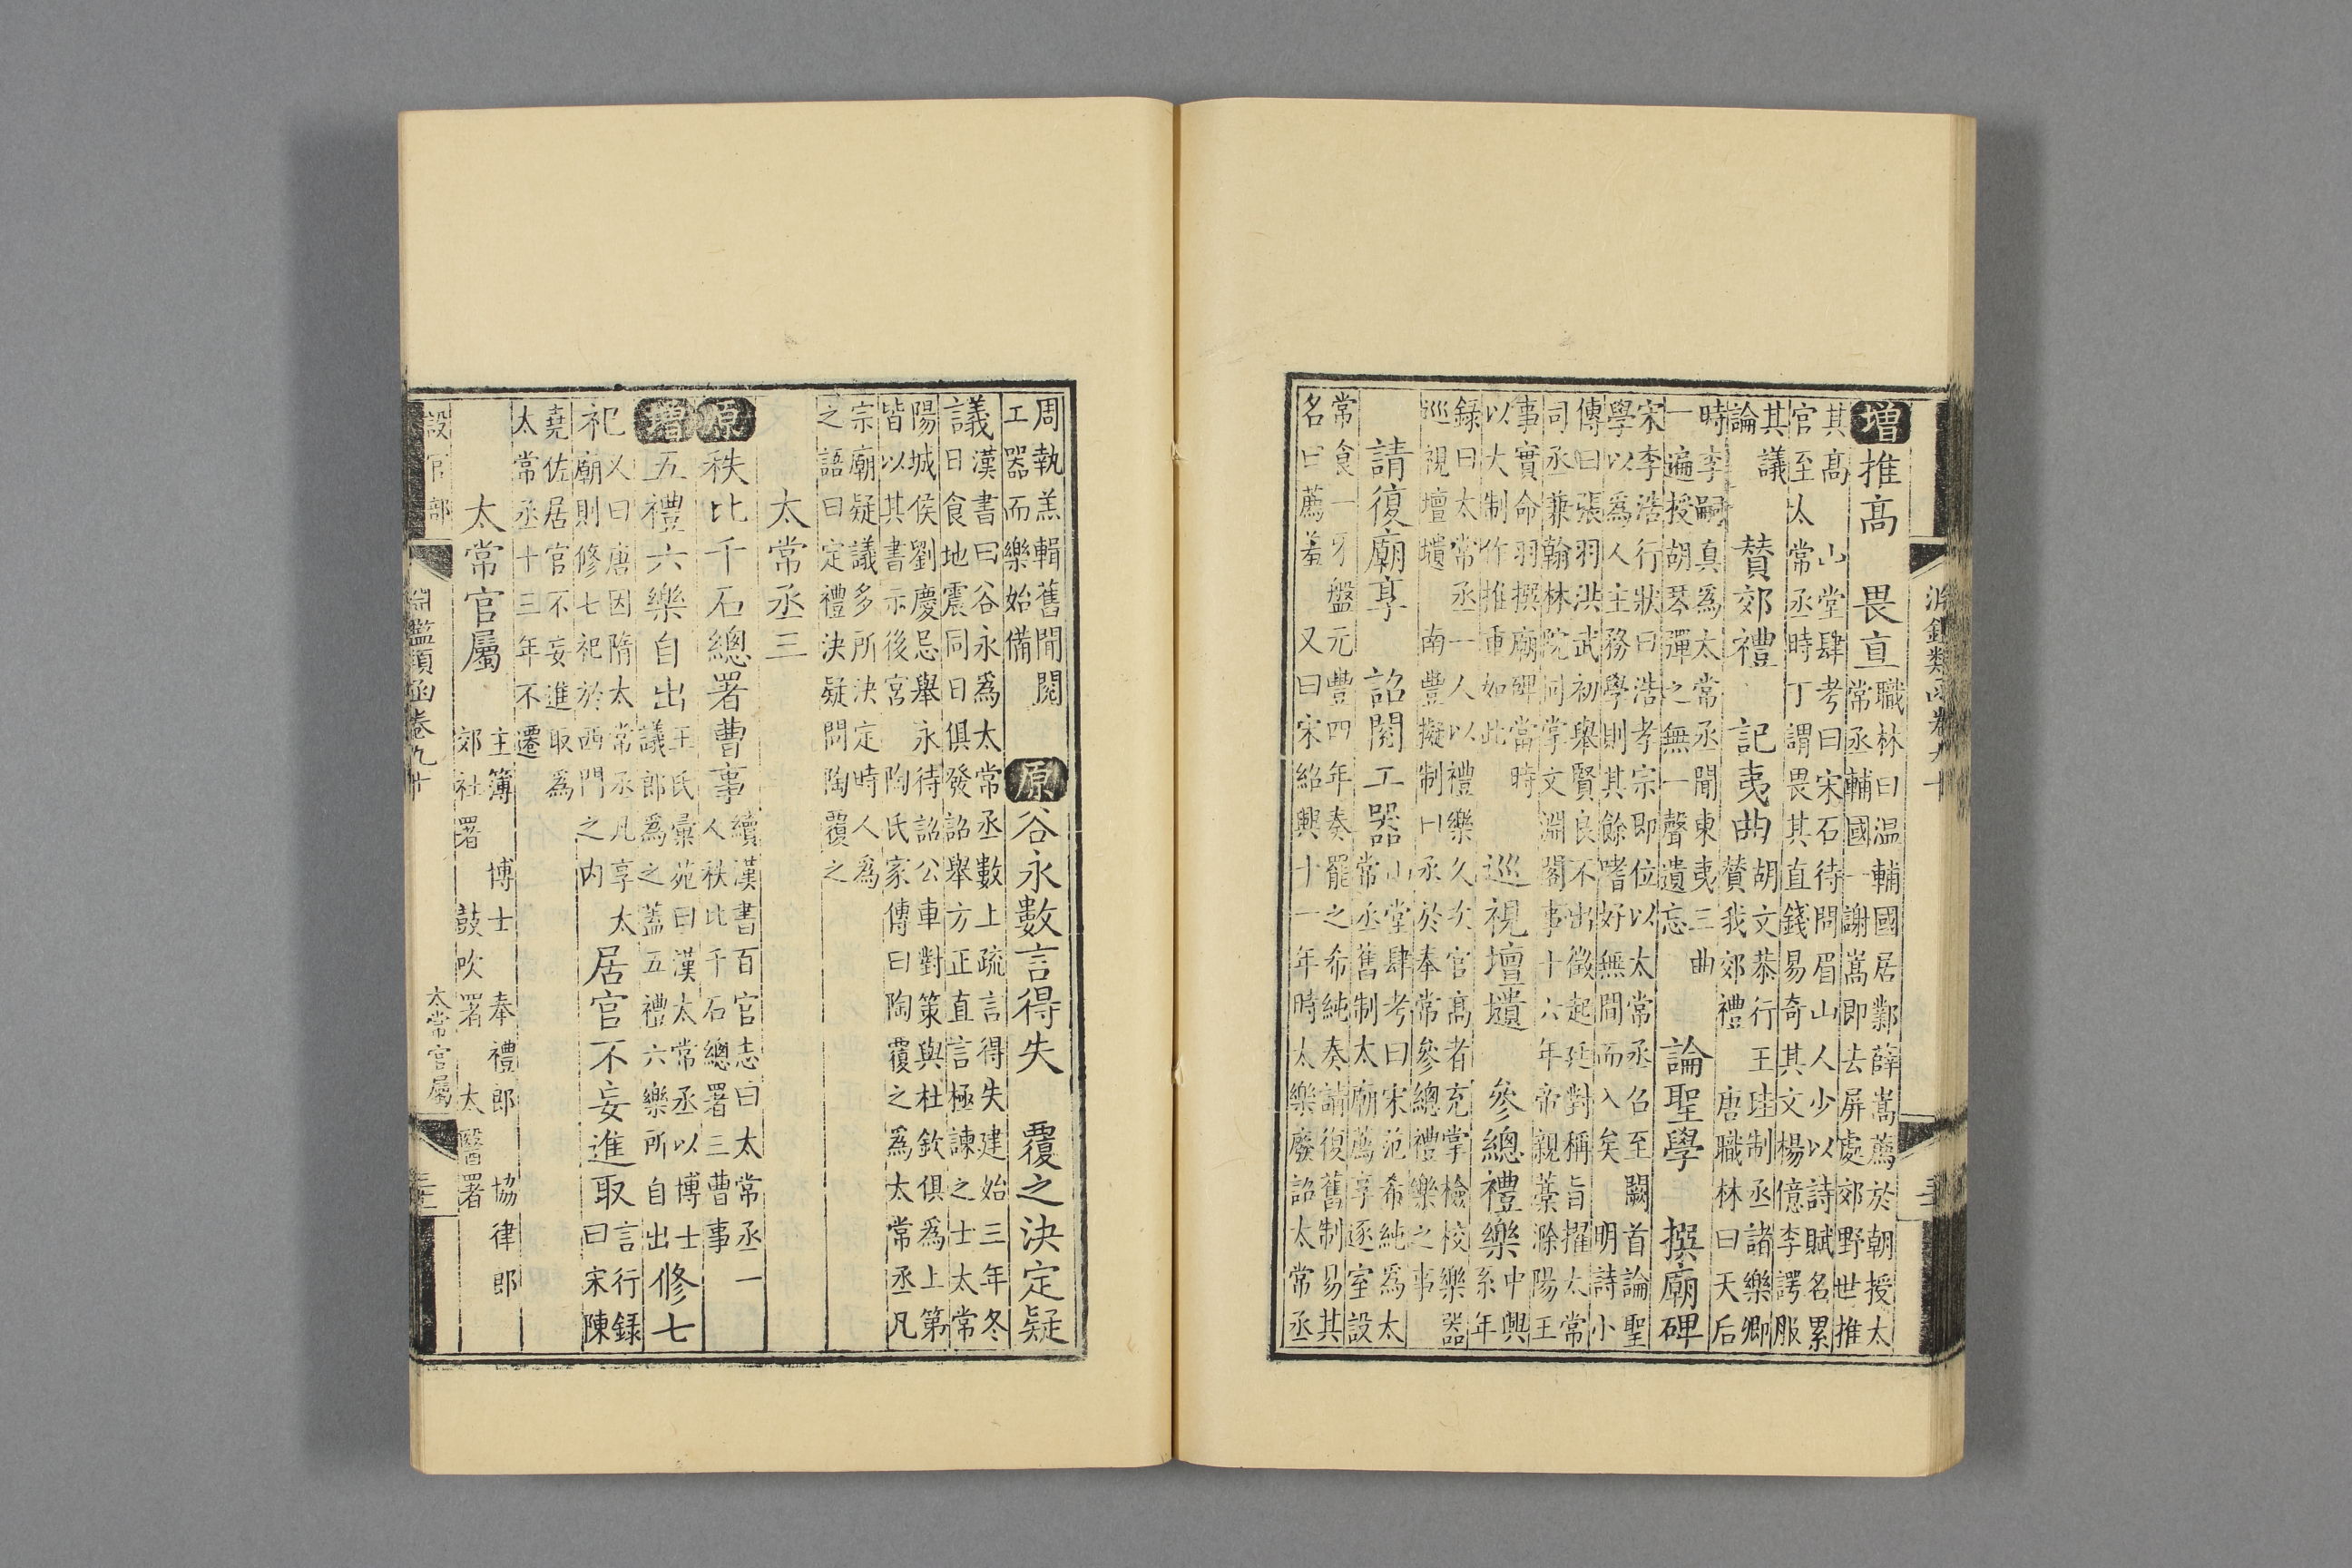 增推高　畏直職林曰温輔國居鄴薛嵩薦於朝授太
常丞輔國一謝嵩即去屏處郊野世推
其高　山堂肆考曰宋石待問眉山人少以詩賦名累
官至太常丞時丁謂畏其直錢易奇其文楊億李諤服
其議
論
贊郊禮　記夷曲
胡文恭行王珪制丞諸樂卿
贊我郊禮　唐職林曰天后
時李嗣真爲太常丞聞東夷三曲
一遍援胡琴彈之無一聲遺忘
論聖學　撰廟碑
宋李浩行狀曰浩孝宗即位以太常丞召至闕首論聖
學以爲人主務學則其餘嗜好無間而入矣　明詩小
傳曰張羽洪武初舉賢良不出徵起廷對稱旨擢太常
司丞兼翰林院同掌文淵閣事十六年帝親藁滁陽王
事實命羽撰廟碑當時
以大制作推重如此
巡視壇壝　參總禮樂
中興
系年
錄曰太常丞一人以禮樂久次官高者充掌檢校樂器
巡視壇壝　南豐擬制曰丞於奉常參總禮樂之事
請復廟享　詔閱工器
山堂肆考曰宋范希純爲太
常丞舊制太廟薦享逐室設
常食一牙盤元豐四年奏罷之希純奏請復舊制易其
名曰薦羞　又曰宋紹興十一年時太樂廢詔太常丞
周執羔輯舊聞閱
工器而樂始備
原谷永數言得失　覆之決定疑
議
漢書曰谷永爲太常丞數上疏言得失建始三年冬
日食地震同日俱發詔舉方正直言極諫之士太常
陽城侯劉慶忌舉永待詔公車對策與杜欽俱爲上第
皆以其書示後宮　陶氏家傳曰陶覆之爲太常丞凡
宗廟疑議多所決定時人爲
之語曰定禮決疑問陶覆之
太常丞三
原秩比千石總署曹事
續漢書百官志曰太常丞一
人秩比千石總署三曹事
增五禮六樂自出
王氏彙苑曰漢太常丞以博士
議郎爲之蓋五禮六樂所自出
修七
祀
又曰唐因隋太常丞凡享太
廟則修七祀於西門之内
居官不妄進取
言行録
曰宋陳
堯佐居官不妄進取爲
太常丞十三年不遷
太常官屬
主簿　博士　奉禮郎　協律郎
郊社署　鼓吹署　太醫署
設官部　淵鑑類函卷九十　太常官屬